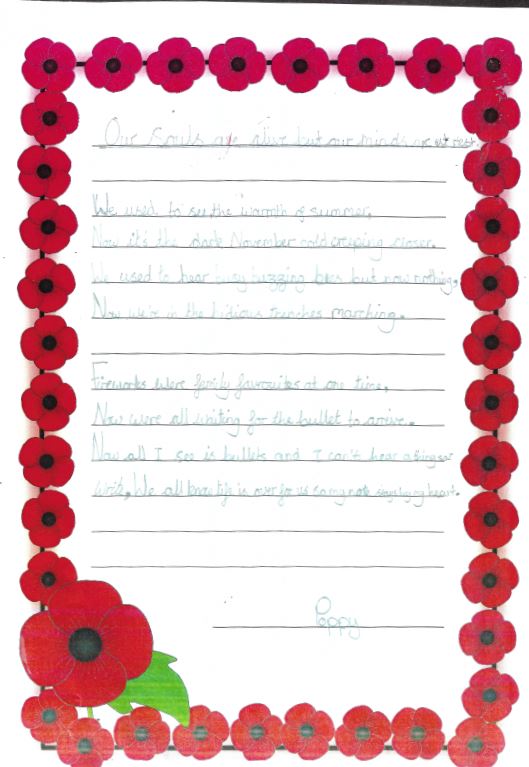 Our souls are alive but our minds are at rest.
We used to see the warmth of summer.
Now it's the dark November cold creeping closer.
We used to hear busy buzzing bees but now nothing.
Now we're in the hidious trenches marching.
Fireworks were family favourites at one time.
Now were all waiting for the bullet to arrive.
Now all I see is bullets and I can't hear a thing so
write. We all know life is over for us so my note stays by my heart.
Poppy